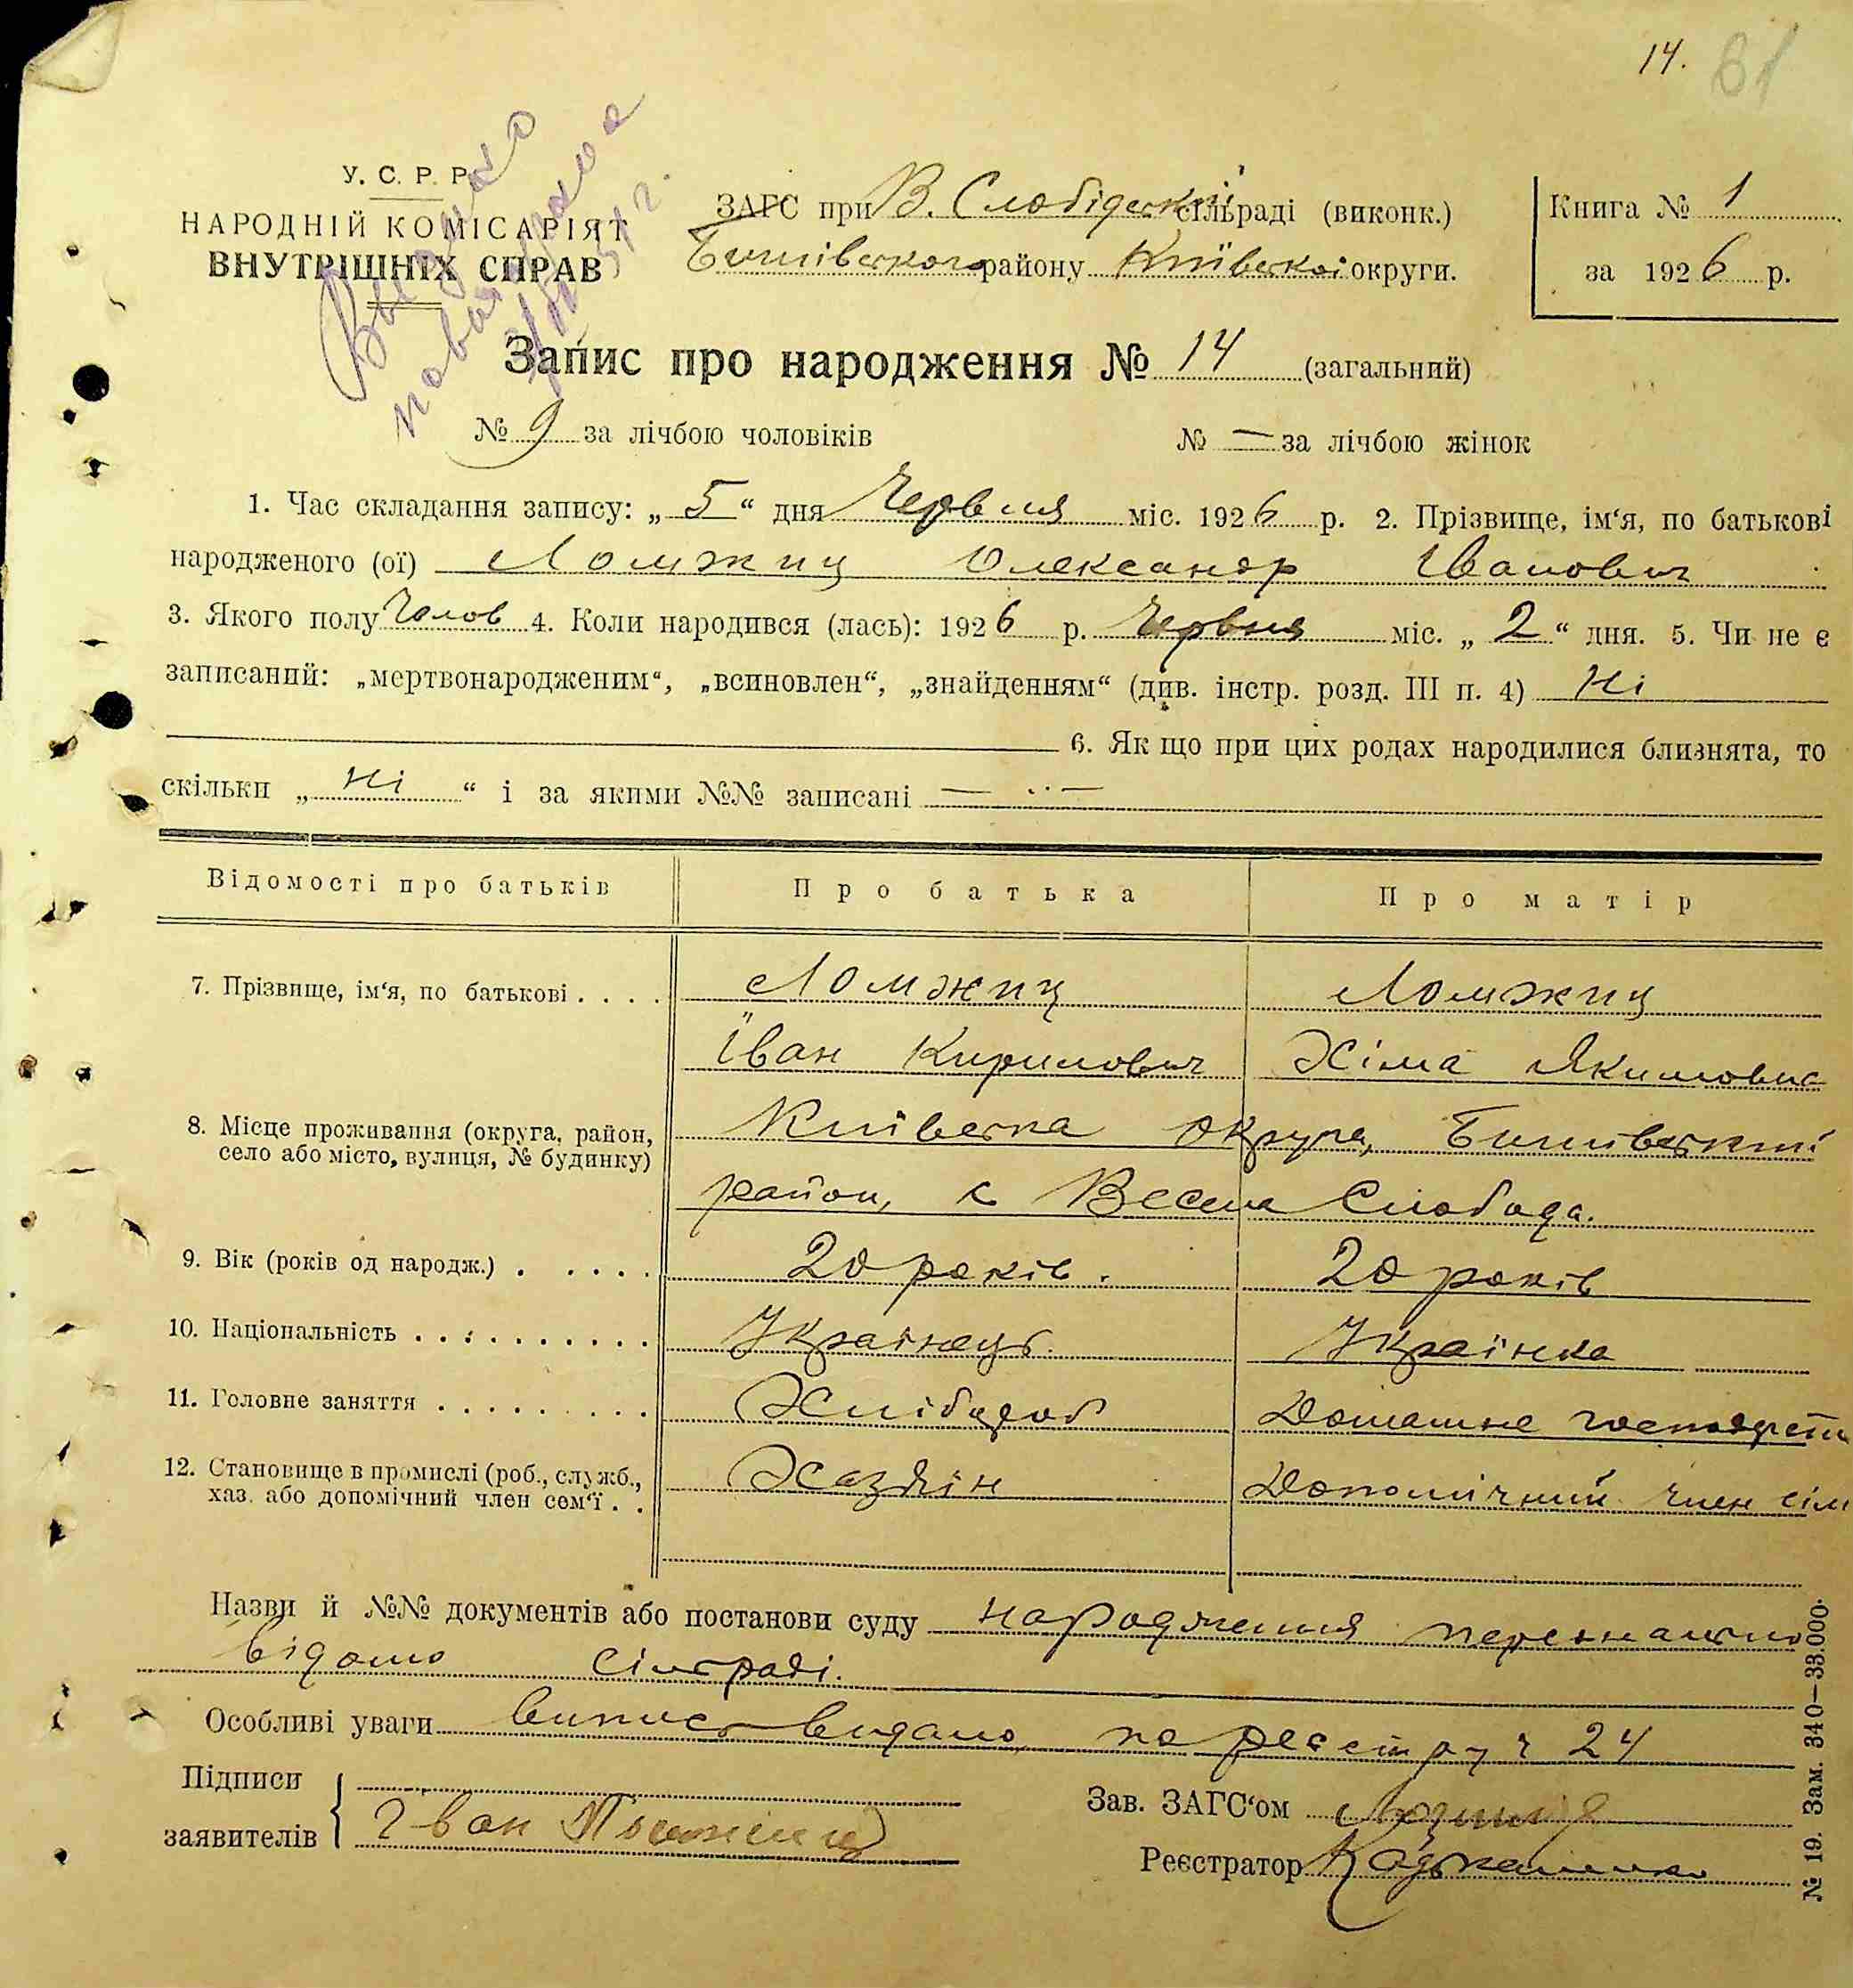 14. 81
У. С. Р. Р.
НАРОДНІЙ КОМІСАРІЯТ
ВНУТРІШНІХ СПРАВ
ЗАГС при В. Слобідській сільраді (виконк.)
Бишівского району Київської округи.
Книга № 1
за 1926 р.
Запис про народження № 14 (загальний)
№ 9 за лічбою чоловіків № — за лічбою жінок
1. Час складання запису: „5“ дня Червня міс. 1926 р. 2. Прізвище, ім'я, по батькові
народженого (ої) Ломжиц Олександр Іванович
3. Якого полу Чолов 4. Коли народився (лась): 1926 р. Червня міс. „2“ дня. 5. Чи не є
записаний: „мертвонародженим“, „всиновлен“, „знайденням“ (див. інстр. розд. III п. 4) Ні
6. Як що при цих родах народилися близнята, то
скільки „Ні“ і за якими №№ записані —
Відомості про батьків Про батька Про матір
7. Прізвище, ім'я, по батькові . . . . Ломжиц Ломжиц
Іван Кирилович Хіма Якимовна
8. Місце проживання (округа, район, Київска округа, Бишівский
село або місто, вулиця, № будинку) район, с Весела Слобода.
9. Вік (років од народж.) . . . . . 20 років. 20 років
10. Національність . . . . . . . . . . Українець. Українка
11. Головне заняття . . . . . . . . . Хлібороб Домашне господарств
12. Становище в промислі (роб., служб., Хазяїн Допомічний член сім
хаз. або допомічний член сем'ї . .
Назви й №№ документів або постанови суду народження персонально
відомо сільраді.
Особливі уваги випись видано по реєстру ч 24
Підписи
заявителів Іван Ломжиц
Зав. ЗАГС'ом
Реєстратор
№ 19. Зам. 340—33.000.